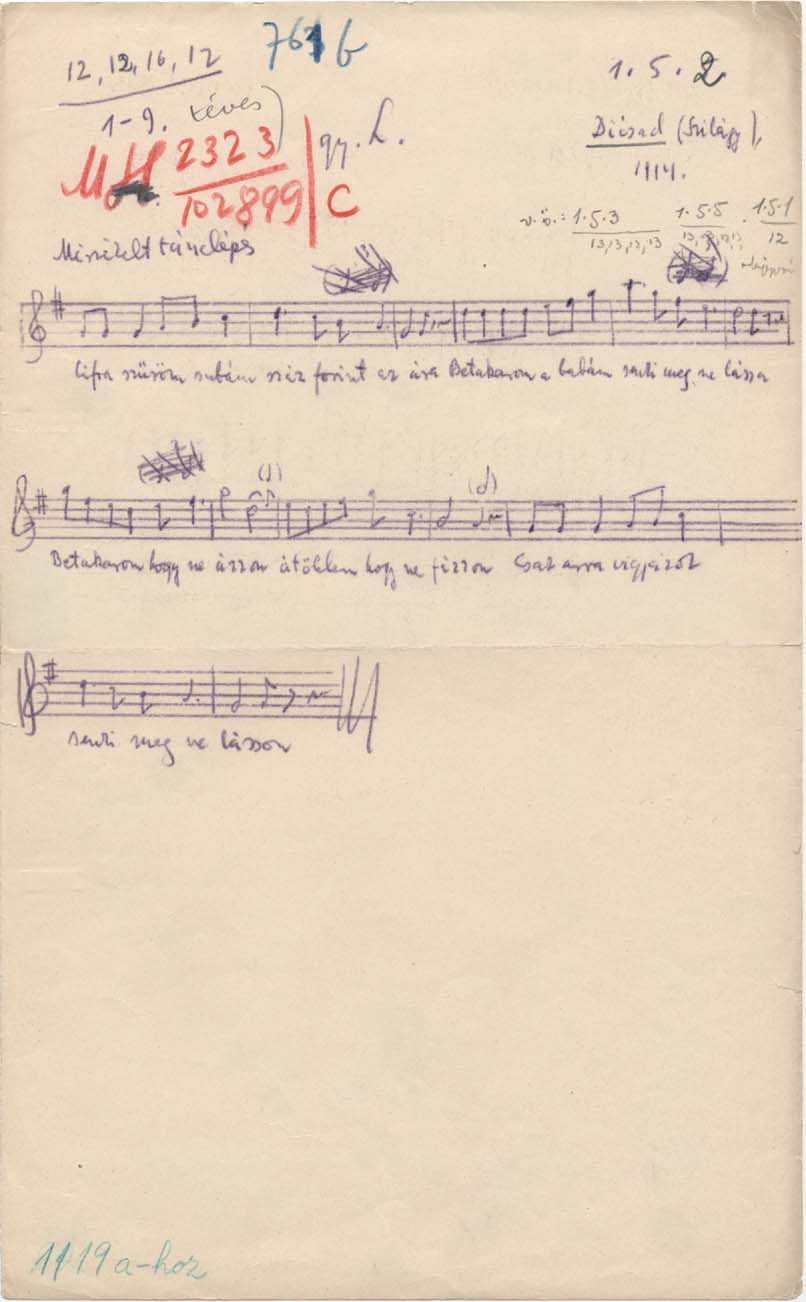 763 b
12, 12, 16, 12
1-9. téves)
1. 5. 2
MH 2323
102899 C
gy. L.
Diósad (Szilágy),
1914.
v. ö.: 1.5.3 1.5.5 1.5.1
13,13,13,13 13, 12
Mérsékelt tánclépés
Cifra szűröm subám száz forint az ára Betakarom a babám senki meg ne lássa
(d) (d)
Betakarom hogy ne ázzon átölelem hogy ne fázzon Csak arra vigyázok
senki meg ne lásson
1119 a-hoz